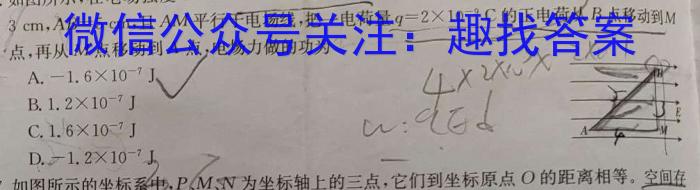 3 cm, AM平行于电场线,把一电荷量q=2×10 C的正电荷从B点移动到M
点,再从M点移动到点,电场力做的功为
微信公众号关注：趣找答案
A. -1.6×10⁻⁷ J
B. 1.2×10⁻⁷ J
C. 1.6×10⁻⁷ J
D. -1.2×10⁻⁷ J
4×2×10
w:qEd
A
M
E
4
如图所示的坐标系中,P、M、N为坐标轴上的三点,它们到坐标原点O的距离相等。空间存